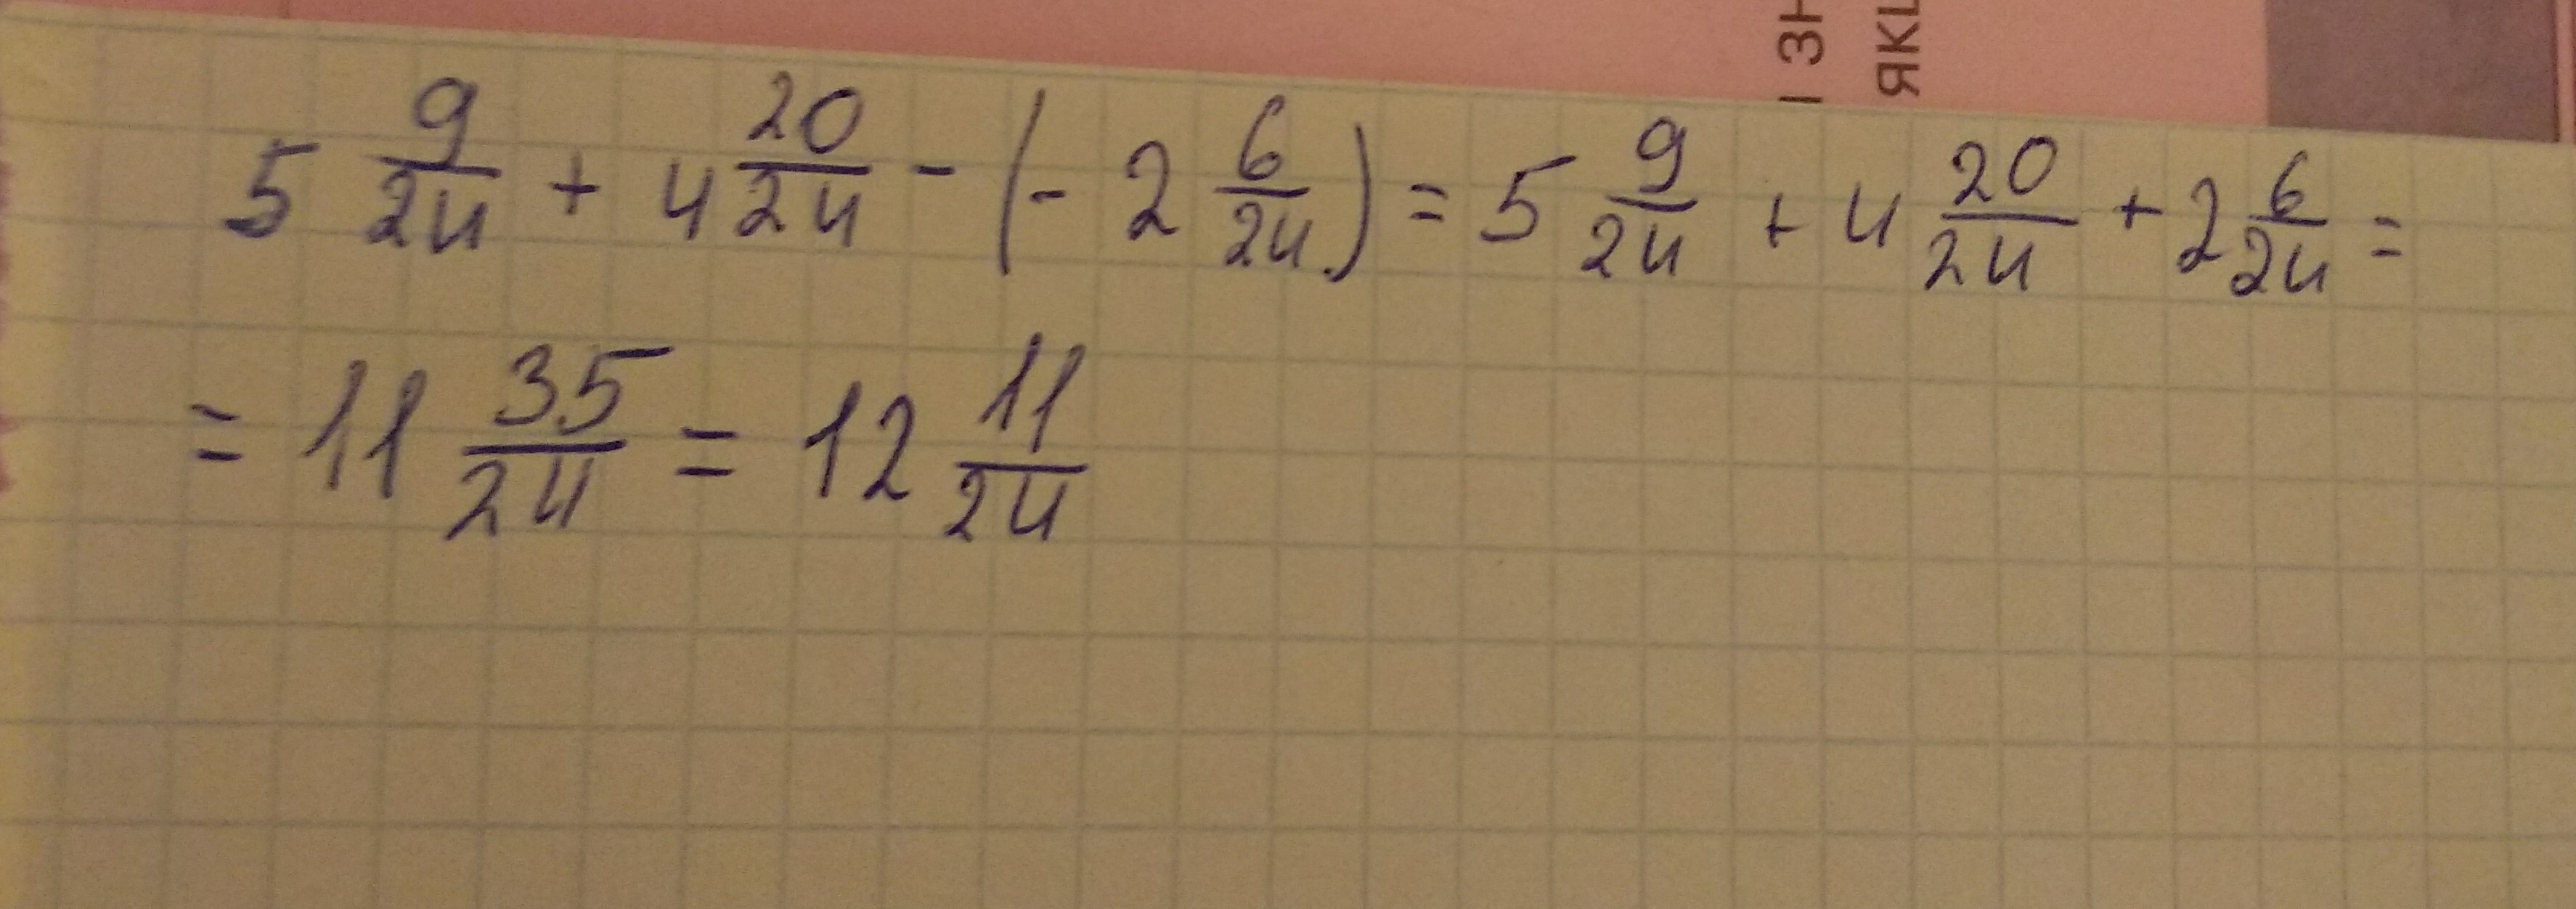 І ЗН
ЯКЩ
5 9/24 + 4 20/24 - (- 2 6/24) = 5 9/24 + 4 20/24 + 2 6/24 =
= 11 35/24 = 12 11/24